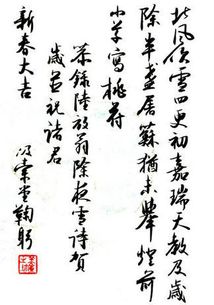 北風吹雪四更初嘉瑞天教及歲
除半盞屠蘇猶未舉燈前
小草寫桃符
恭錄陸放翁除夜雪詩賀
歲並祝諸君
新春大吉
堂鞠躬